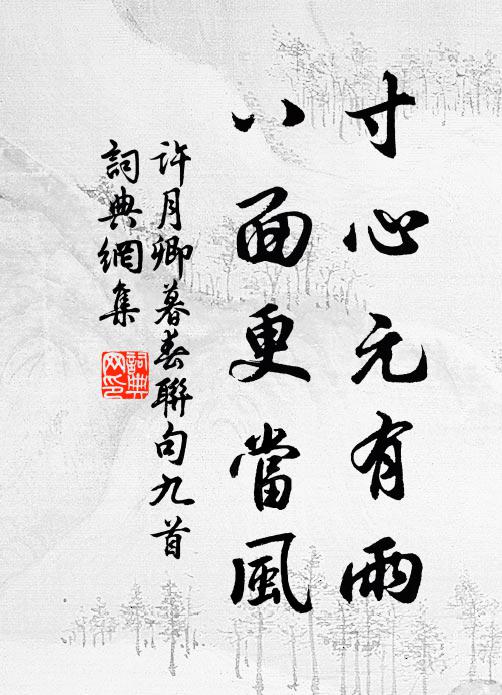 寸心元有雨
八面更當風
許月卿暮春聯句九首
詞典網集
詞典网印